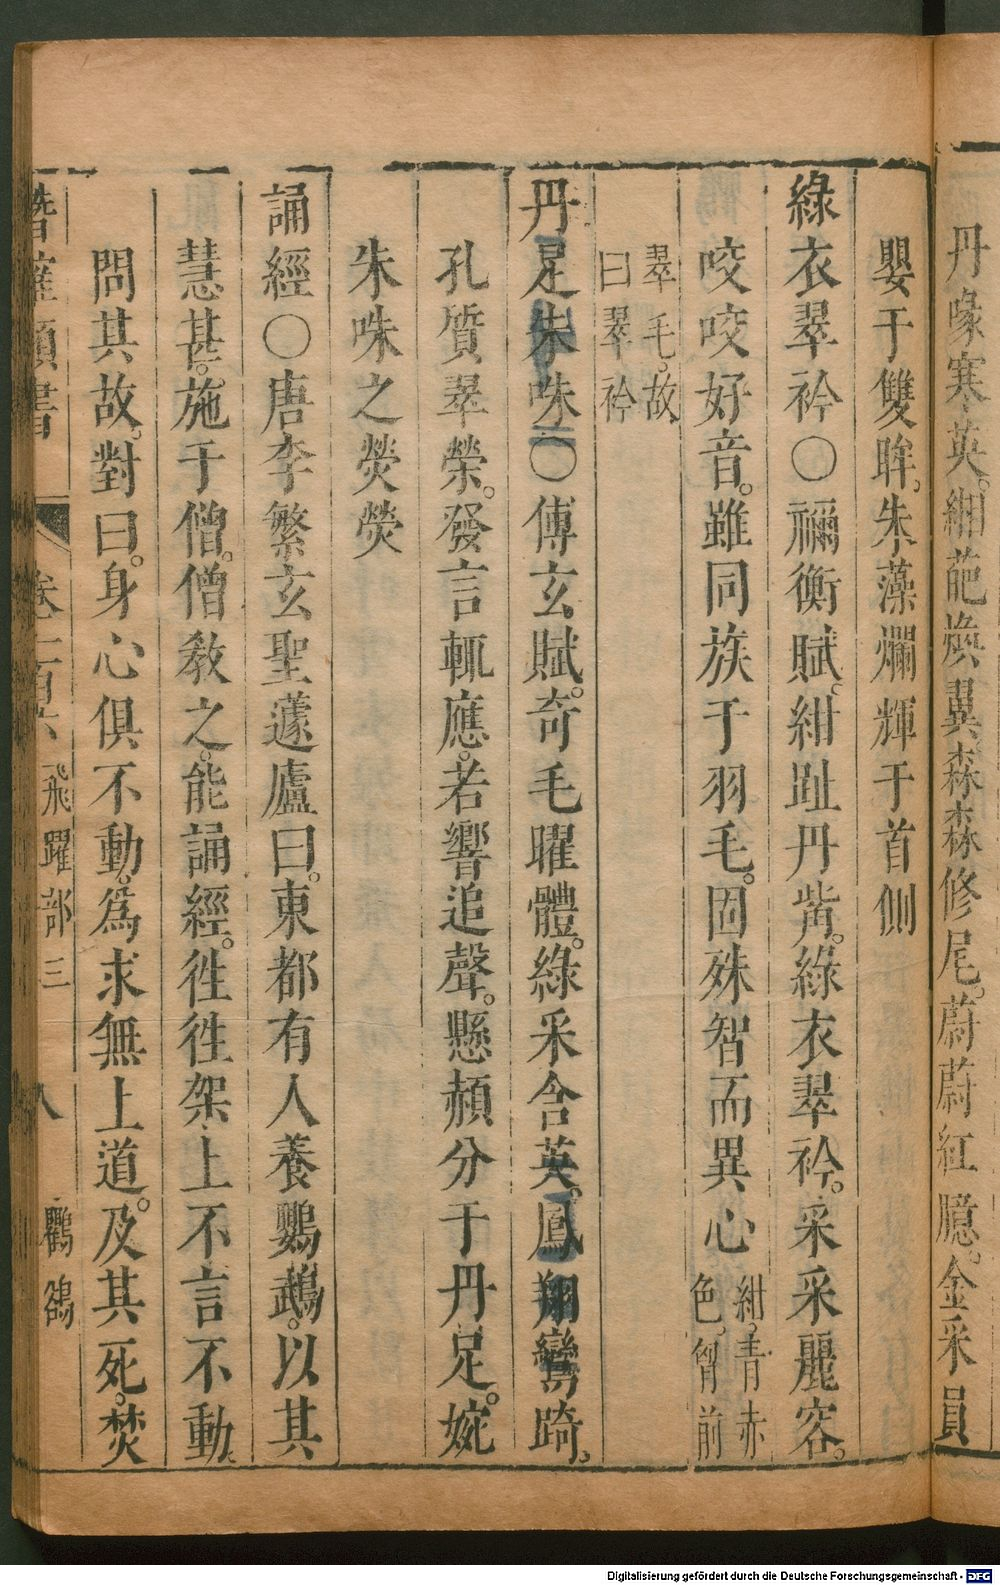 丹喙寒英。紺葩煥翼森森修尾。蔚蔚紅臆。金采員
嬰于雙眸。朱藻爛輝于首側
綠衣翠衿〇禰衡賦。紺趾丹觜。綠衣翠衿。采采麗容。
咬咬好音。雖同族于羽毛。固殊智而異心紺。青赤
色。胷前
翠毛。故
曰翠衿
丹足朱咮〇傅玄賦。奇毛曜體。綠采含英。鳳翔鸞跱。
孔質翠榮。發言輒應。若響追聲。懸頳分于丹足。婉
朱咮之熒熒
誦經〇唐李繁玄聖蘧廬曰。東都有人養鸚鵡。以其
慧甚。施于僧。僧敎之。能誦經。徃徃架上不言不動。
問其故。對曰。身心俱不動。爲求無上道。及其死。焚
潛確類書 卷一百六 飛躍部三 八 鸜鵒
Digitalisierung gefördert durch die Deutsche Forschungsgemeinschaft - DFG